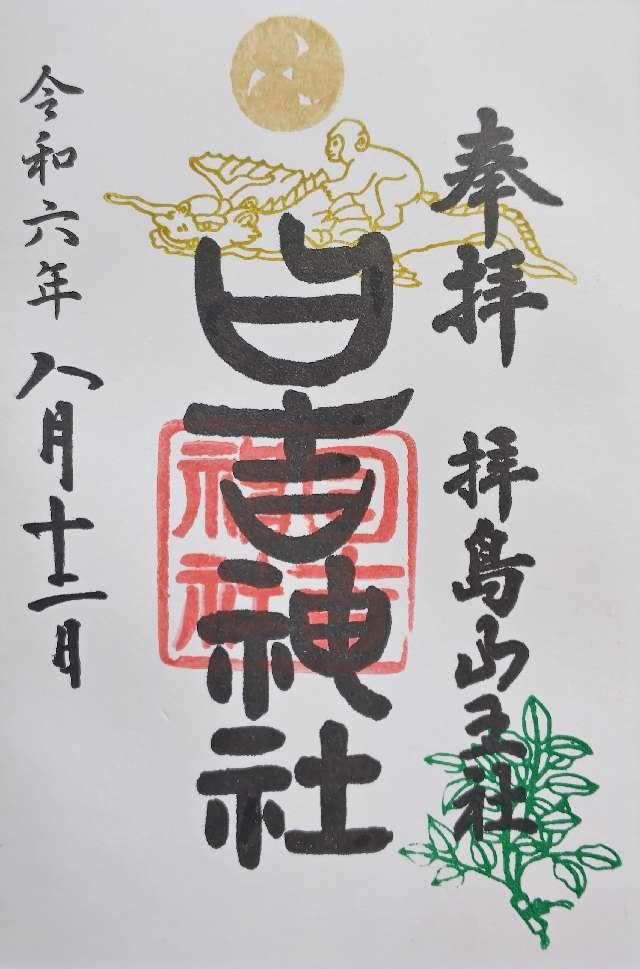 奉拝 拝島山王社
日吉神社
日吉神社
令和六年八月十二日